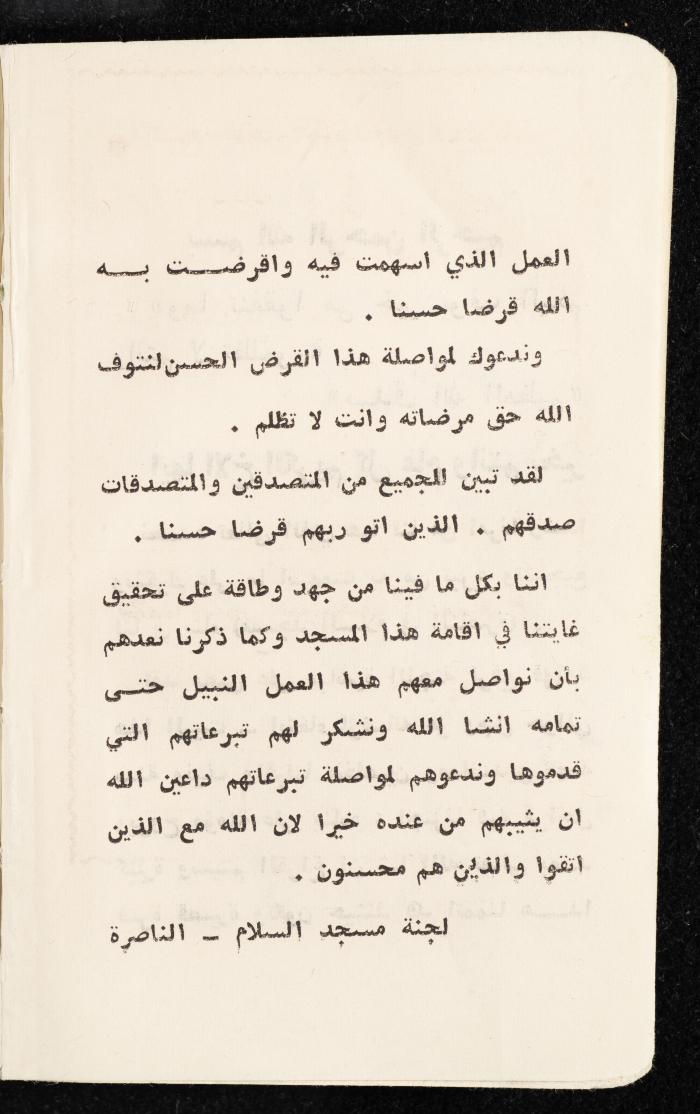 العمل الذي اسهمت فيه واقرضت به
الله قرضا حسنا .
وندعوك لمواصلة هذا القرض الحسن لنتوف
الله حق مرضاته وانت لا تظلم .
لقد تبين للجميع من المتصدقين والمتصدقات
صدقهم . الذين اتو ربهم قرضا حسنا .
اننا بكل ما فينا من جهد وطاقة على تحقيق
غايتنا في اقامة هذا المسجد وكما ذكرنا نعدهم
بأن نواصل معهم هذا العمل النبيل حتى
تمامه انشا الله ونشكر لهم تبرعاتهم التي
قدموها وندعوهم لمواصلة تبرعاتهم داعين الله
ان يثيبهم من عنده خيرا لان الله مع الذين
اتقوا والذين هم محسنون .
لجنة مسجد السلام - الناصرة